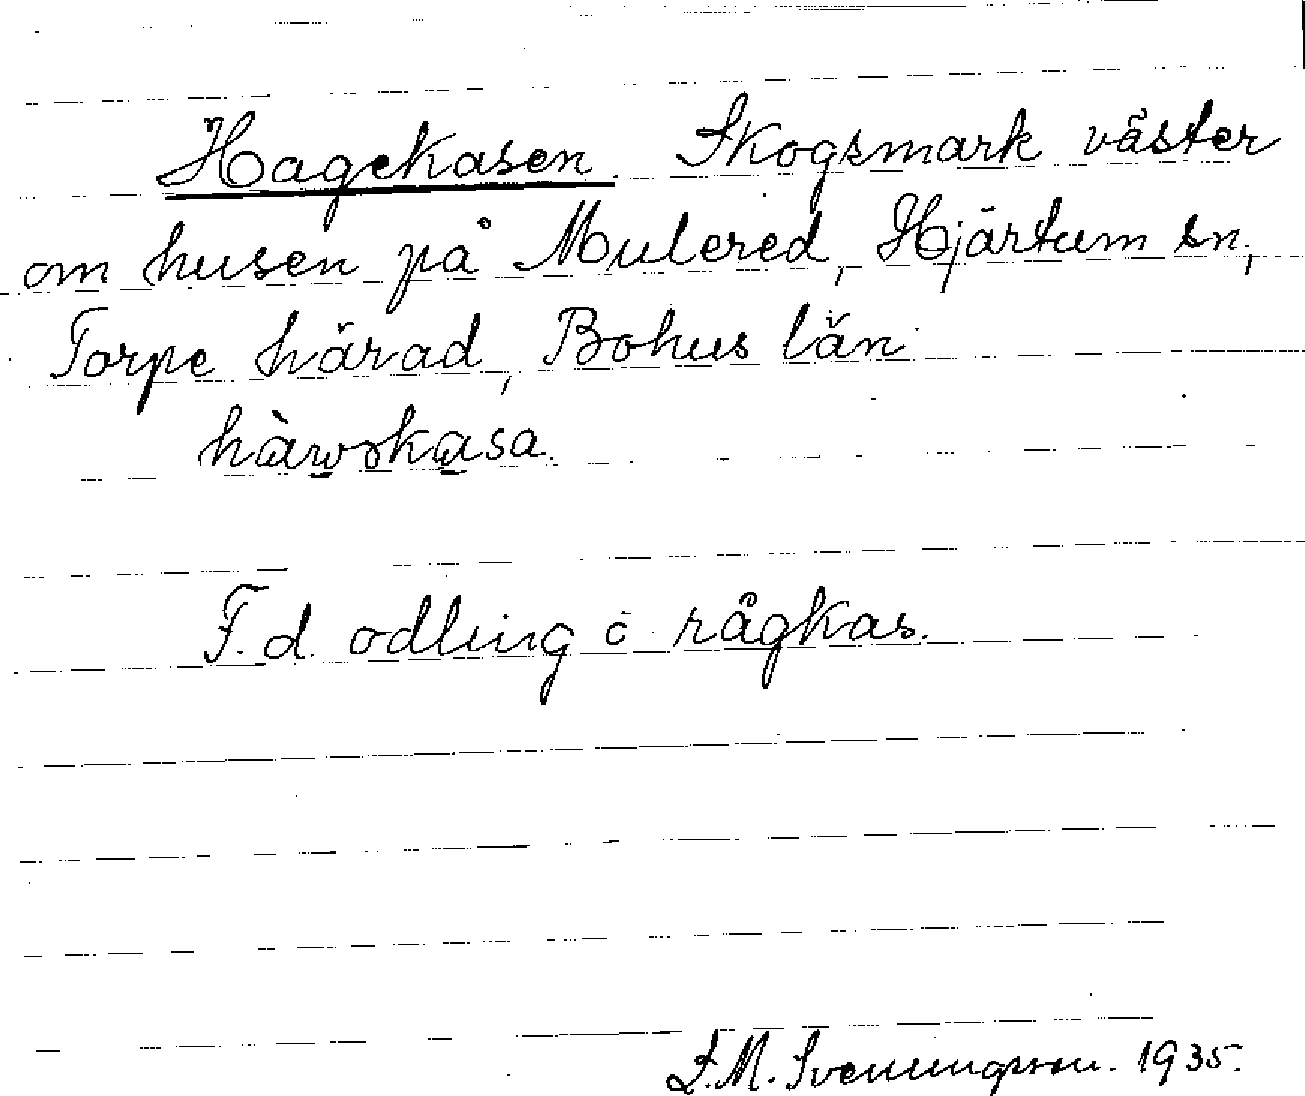 Hagekasen. Skogsmark väster
om husen på Mulered, Hjärtum sn,
Torpe härad, Bohus län
hàwəkasa.
F.d. odling i rågkas.
F.M. Svenningsson. 1935.